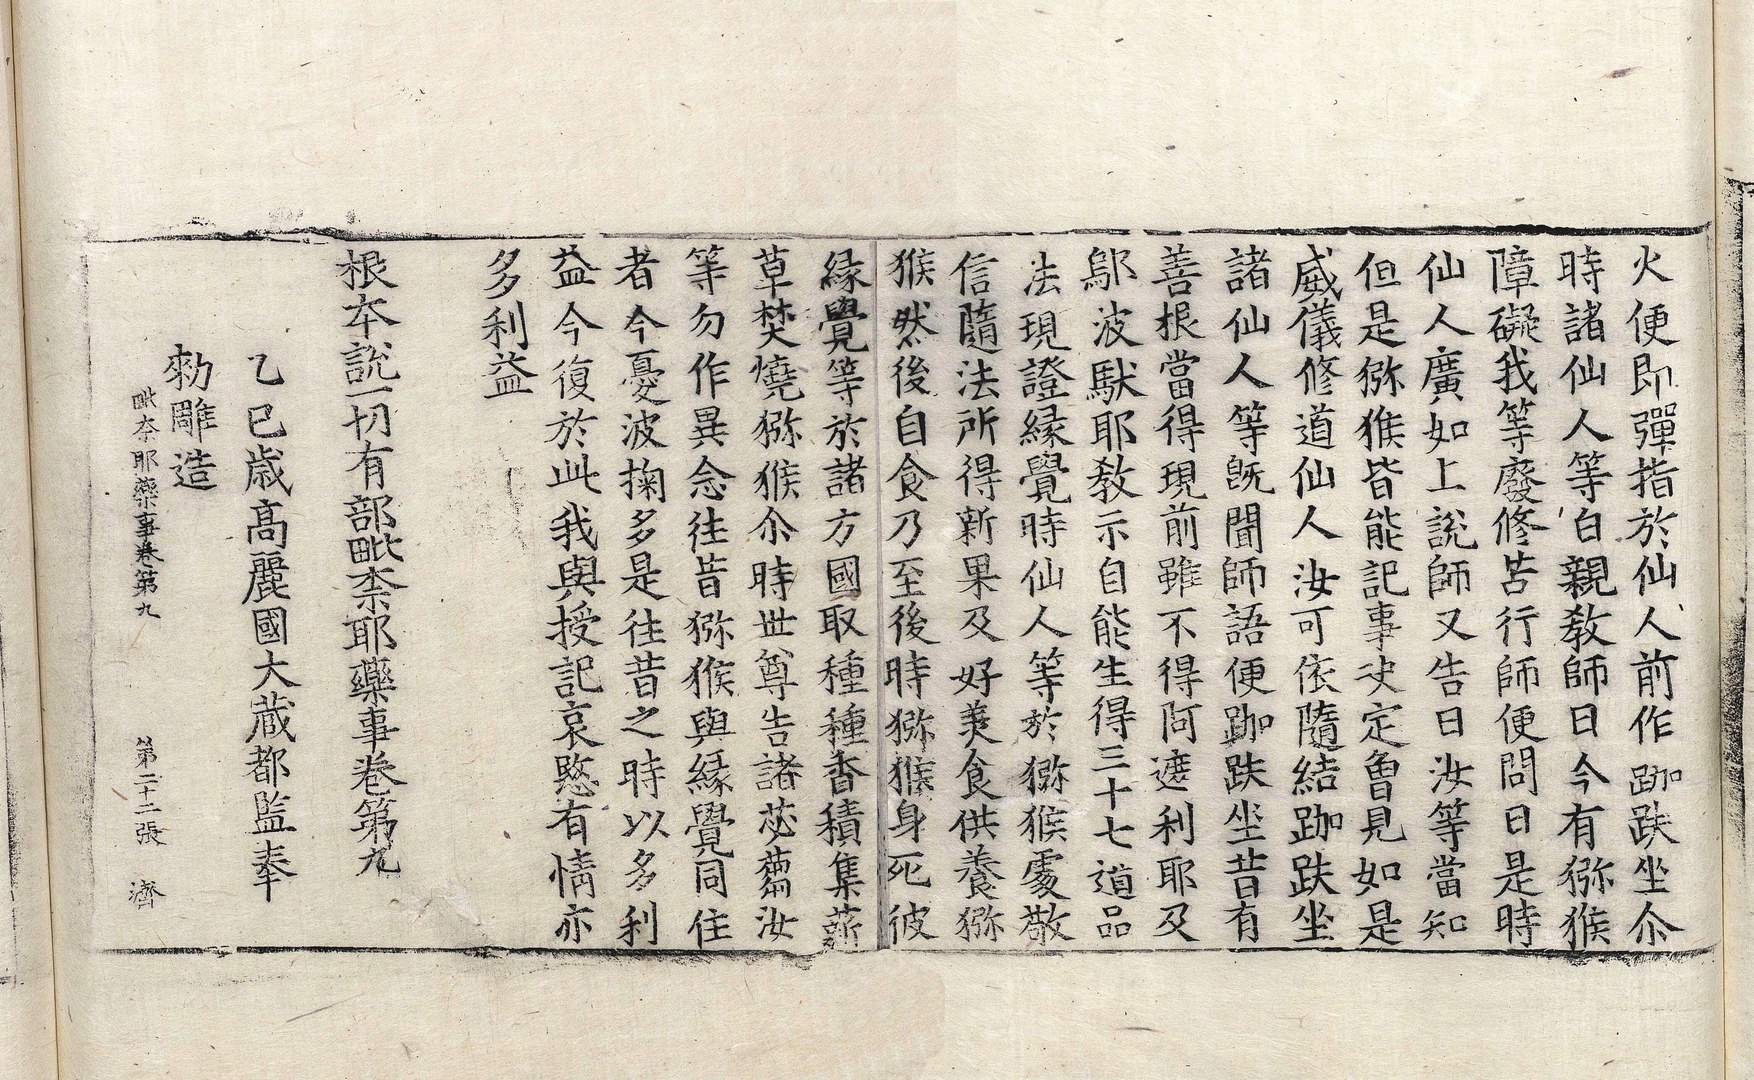 火便即彈指於仙人前作跏趺坐尒
時諸仙人等白親教師曰今有猕猴
障礙我等廢修苦行師便問曰是時
仙人廣如上說師又告曰汝等當知
但是猕猴皆能記事史定曾見如是
威儀修道仙人汝可依隨結跏趺坐
諸仙人等既聞師語便跏趺坐昔有
善根當得現前雖不得阿遮利耶及
鄔波馱耶教示自能生得三十七道品
法現證緣覺時仙人等於猕猴處敬
信隨法所得新果及好美食供養猕
猴然後自食乃至後時猕猴身死彼
緣覺等於諸方國取種種香積集薪
草焚燒猕猴尒時世尊告諸苾蒭汝
等勿作異念往昔猕猴與緣覺同住
者今憂波掬多是往昔之時以多利
益今復於此我與授記哀愍有情亦
多利益
根本說一切有部毗柰耶藥事卷第九
乙巳歲高麗國大藏都監奉
勑雕造
毗柰耶藥事卷第九 第二十二張 濟